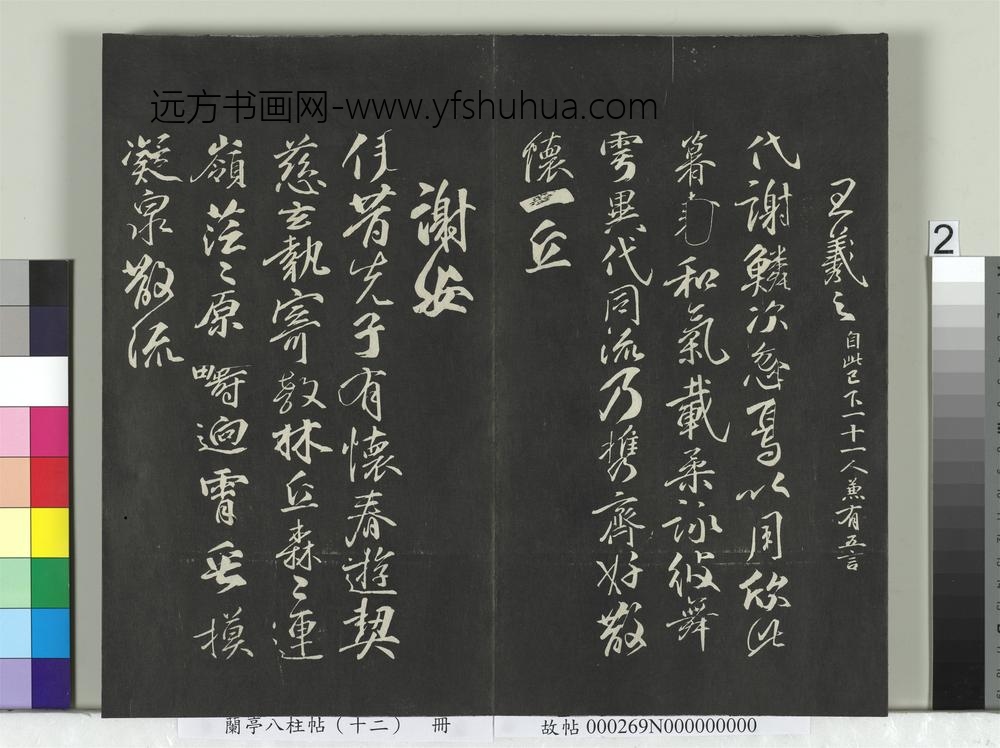 远方书画网-www.yfshuhua.com
王羲之 自此已下十一人兼有五言
代謝鱗次忽焉以周欣此
暮春和氣載柔詠彼舞
雩異代同流乃携齊好散
懷一丘
謝安
伊昔先子有懷春遊契
慈玄執寄敖林丘森〻連
嶺茫〻原疇迥霄垂
凝泉散流
2
蘭亭八柱帖（十二） 冊
故帖 000269N000000000